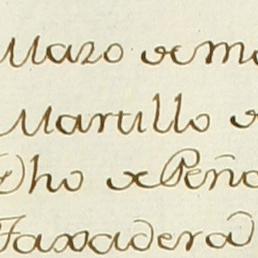 Mazo de ma
Martillo d
Dho de Peña
Taxadera